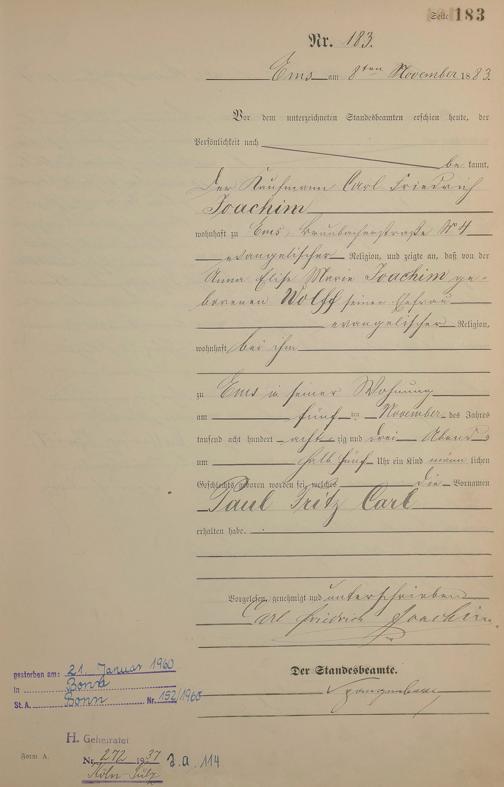 Seite 183
Nr. 183.
Ems am 8ten November 1883.
Vor dem unterzeichneten Standesbeamten erschien heute, der
Persönlichkeit nach
be kannt,
Der Kaufmann Carl Friedrich
Joachim
wohnhaft zu Ems, Braubacherstraße No 4
evangelischer Religion, und zeigte an, daß von der
Anna Elise Marie Joachim ge-
borenen Wolff seiner Ehefrau
evangelischer Religion,
wohnhaft bei ihm
zu Ems in seiner Wohnung
am fünf ten November des Jahres
tausend acht hundert acht zig und drei Abends
um halb fünf Uhr ein Kind männ lichen
Geschlechts geboren worden sei, welches die Vornamen
Paul Fritz Carl
erhalten habe.
Vorgelesen, genehmigt und unterschrieben
Carl Friedrich Joachim.
Der Standesbeamte.
gestorben am: 21. Januar 1960
in Bonn
St.A. Bonn Nr. 152/1960
H. Geheiratet
Nr. 272 1937 3.a. 114
Köln Sülz
Form A.